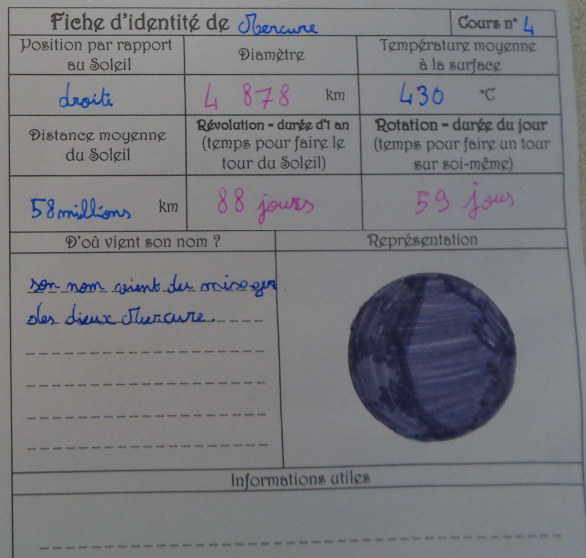 Fiche d'identité de Mercure
Cours n° 4
Position par rapport
au Soleil
Diamètre
Température moyenne
à la surface
droite
4 878 km
430 °C
Distance moyenne
du Soleil
Révolution = durée d'1 an
(temps pour faire le
tour du Soleil)
Rotation = durée du jour
(temps pour faire un tour
sur soi-même)
58 millions km
88 jours
59 jous
D'où vient son nom ?
Représentation
son nom vient du
des dieux Mercure
Informations utiles